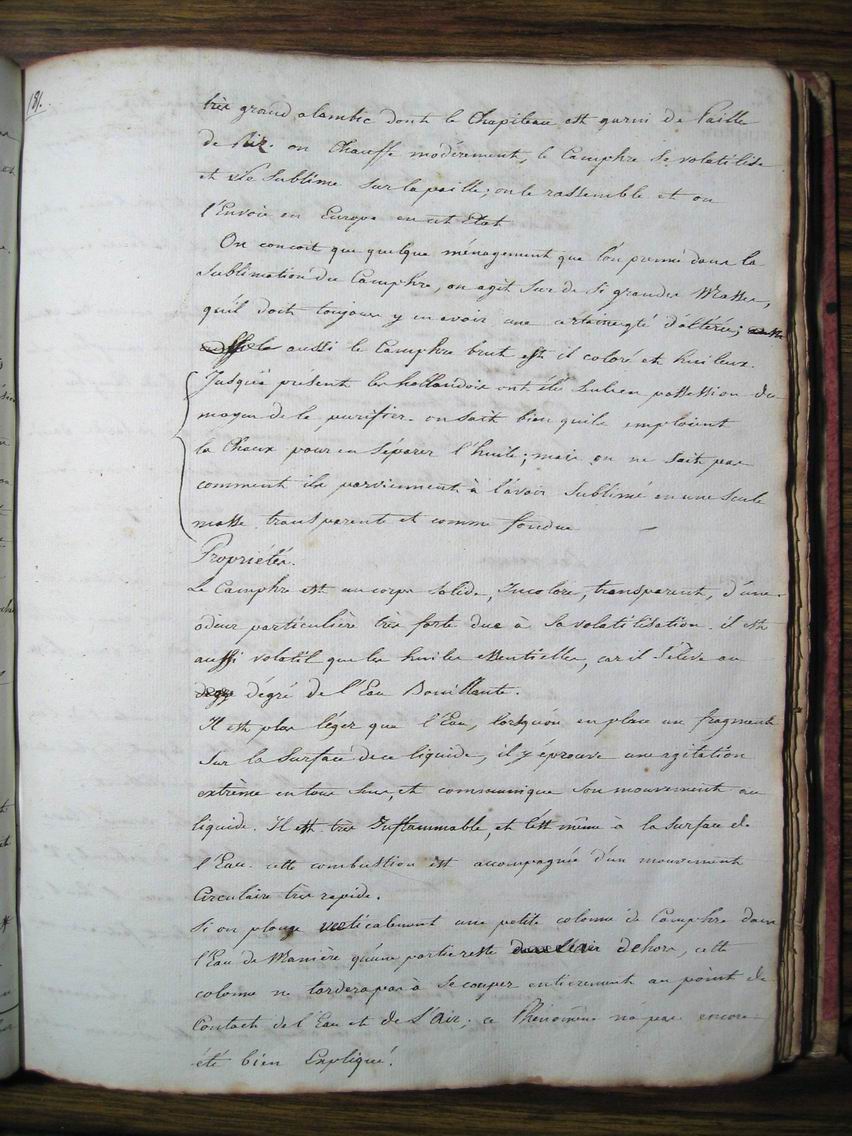 181.
très grand alambic dont le Chapiteau est garni de Paille
de Riz. on Chauffe modérement, le Camphre Se volatilise
et Se Sublime Sur la paille; on le rassemble et on
l'Envoie en Europe en cet Etat
On concoit que quelque ménagement que l'on prenne dans la
Sublimation du Camphre, on agit Sur de Si grandes Masses,
qu'il doit toujours y en avoir une certaine qté d'altérée;
aussi le Camphre brut est il coloré et huileux.
Jusqu'à présent les hollandois ont été Seuls en possession du
moyen de le purifier. on sait bien qu'ils emploient
la Chaux pour en Séparer l'huile; mais on ne Sait pas
comment ils parviennent à l'avoir Sublimé en une Seule
masse transparente et comme fondue
Propriétés.
Le Camphre est un corps Solide, Incolore, transparent, d'une
odeur particulière très forte due à Sa volatilisation. il est
aussi volatil que les huiles essentielles, car il S'élève au
dégré de l'Eau Bouillante.
Il est plus léger que l'Eau, lorsqu'on en place un fragment
Sur la Surface de ce liquide, il y éprouve une agitation
extrême en tous Sens, et communique Son mouvement au
liquide. Il est très Inflammable, et l'est même à la Surface de
l'Eau. cette combustion est accompagnée d'un mouvement
Circulaire très rapide.
Si on plonge verticalement une petite colonne de Camphre dans
l'Eau de Manière qu'une partie reste dehors, cette
colonne ne tardera pas à Se couper entierement au point de
Contact de l'Eau et de l'Air; ce Phénomène n'a pas encore
été bien Expliqué.